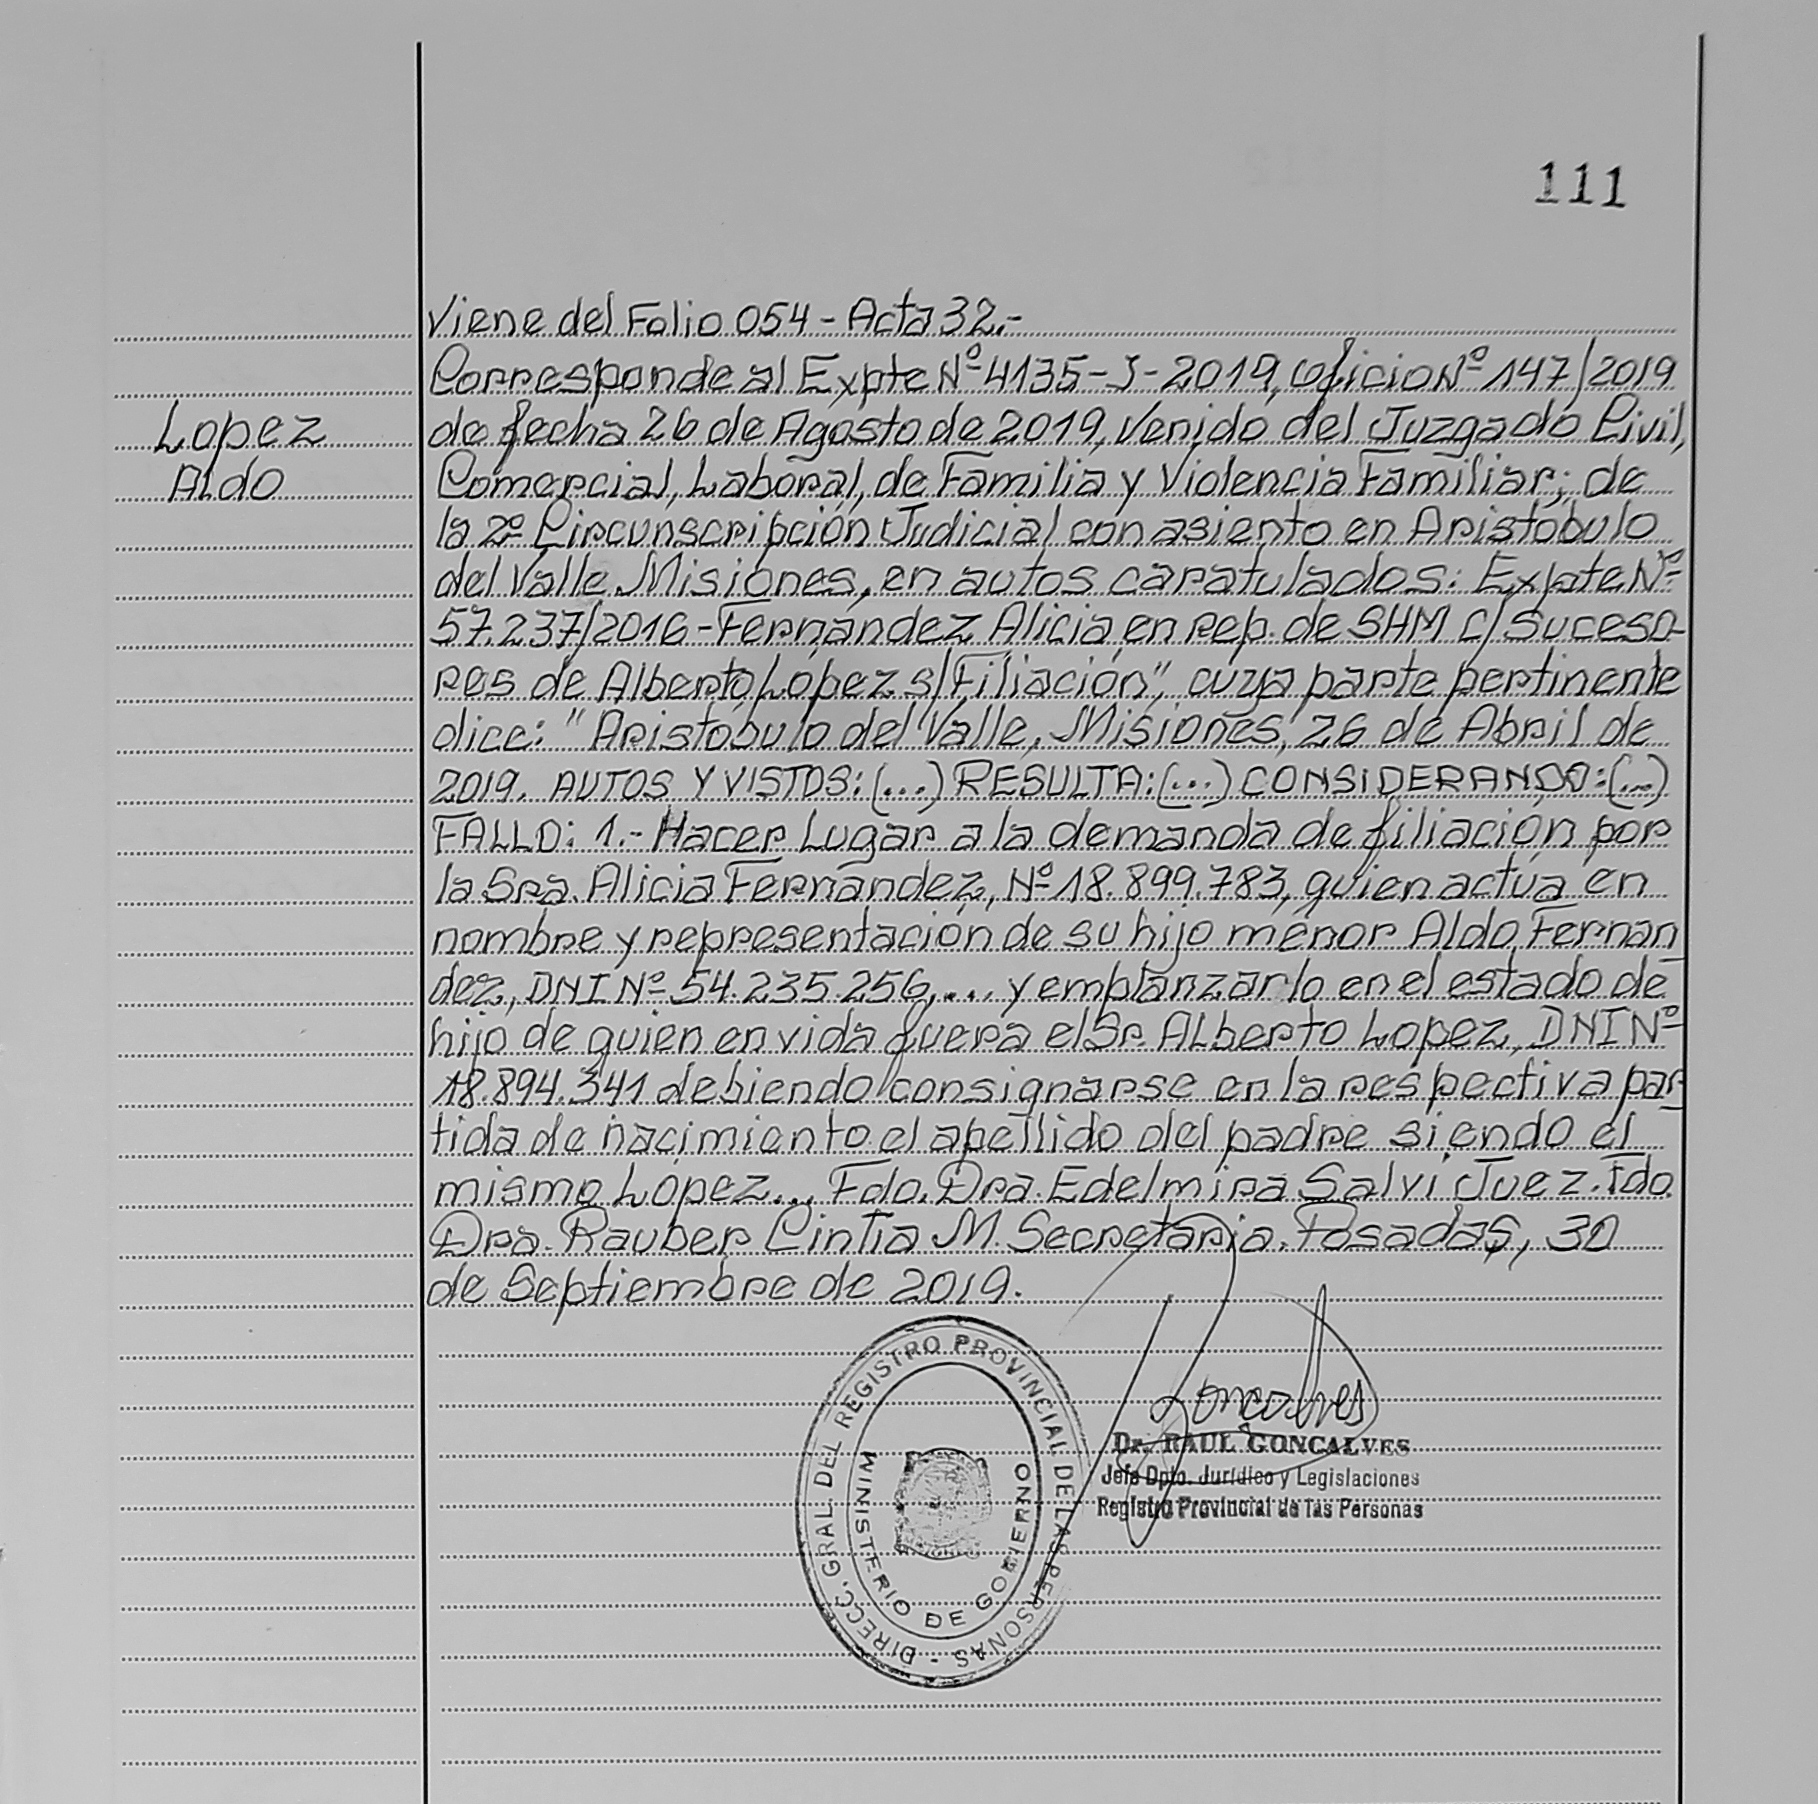 111
Viene del Folio 054 - Acta 32.-
Corresponde al Expte Nº 4135-J-2019, oficio Nº 147/2019
Lopez
Aldo
de fecha 26 de Agosto de 2019, Venido del Juzgado Civil,
Comercial, Laboral, de Familia y Violencia Familiar; de
la 2º Circunscripción Judicial con asiento en Aristóbulo
del Valle Misiones, en autos caratulados: Expte Nº
57.237/2016 - Fernández Alicia en rep. de SHM c/ Suceso-
res de Alberto López s/ Filiación", cuya parte pertinente
dice: "Aristóbulo del Valle, Misiones, 26 de Abril de
2019. AUTOS Y VISTOS: (...) RESULTA: (...) CONSIDERANDO: (...)
FALLO: 1.- Hacer Lugar a la demanda de filiación por
la Sra. Alicia Fernández, Nº 18.899.783, quien actúa en
nombre y representación de su hijo menor Aldo Fernan
dez, DNI Nº 54.235.256, ... y emplanzarlo en el estado de
hijo de quien en vida fuera el Sr. Alberto Lopez, DNI Nº
18.894.341 debiendo consignarse en la respectiva par-
tida de nacimiento el apellido del padre siendo el
mismo López... Fdo. Dra. Edelmira Salvi Juez. Fdo.
Dra. Rauber Cintia M. Secretaria. Posadas, 30
de Septiembre de 2019.
DIRECC. GRAL. DEL REGISTRO PROVINCIAL DE LAS PERSONAS -
MINISTERIO DE GOBIERNO
MISIONES
Goncalves
Dr. RAUL GONCALVES
Jefe Dpto. Jurídico y Legislaciones
Registro Provincial de las Personas